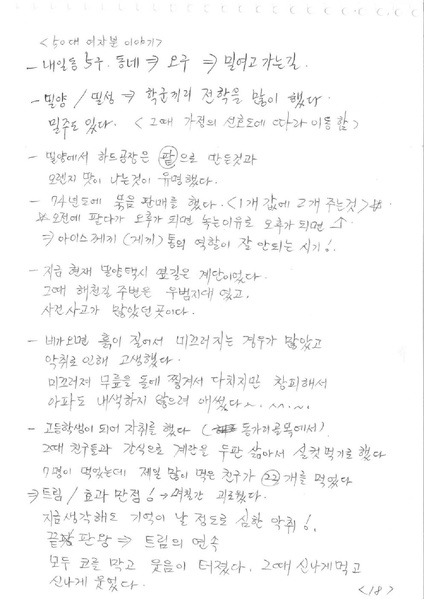 <50대 여자분 이야기>
- 내일동 5구. 동네 ⇒ 오구 ⇒ 밀어고 가는 길.
- 밀양 / 밀성 ⇒ 학군끼리 전학을 많이 했다.
밀주도 있다. <그때 가정의 선호도에 따라 이동함>
- 밀양에서 하드공장은 팥으로 만든것과
오렌지 맛이 나는것이 유명했다.
- 74년도에 묶음 판매를 했다. <1개 값에 2개 주는것>
※오전에 판다가 오후가 되면 녹는이유로 오후가 되면 ↑
⇒ 아이스께끼 (게끼) 통의 역할이 잘 안되는 시기!
- 지금 현재 밀양택시 옆길은 계단이었다.
그때 해천길 주변은 우범지대 였고.
사건사고가 많았던 곳이다.
- 비가오면 흙이 질어서 미끄러지는 경우가 많았고
악취로 인해 고생했다.
미끄러져 무릎을 돌에 찧겨서 다치지만 창피해서
아파도 내색하지 않으려 애썼다~.~~..~.
- 고등학생이 되어 자취를 했다 (동가리골목에서)
그때 친구들과 간식으로 계란을 두판 삶아서 실컷 먹기로 했다
7명이 먹었는데 제일 많이 먹은 친구가 22개를 먹었다
⇒ 트림 / 효과 만점! → 며칠간 괴로웠다.
지금 생각해도 기억이 날 정도로 심한 악취!.
끝 판왕 ⇒ 트림의 연속
모두 코를 막고 웃음이 터졌다. 그때 신나게 먹고
신나게 웃었다.
<18>